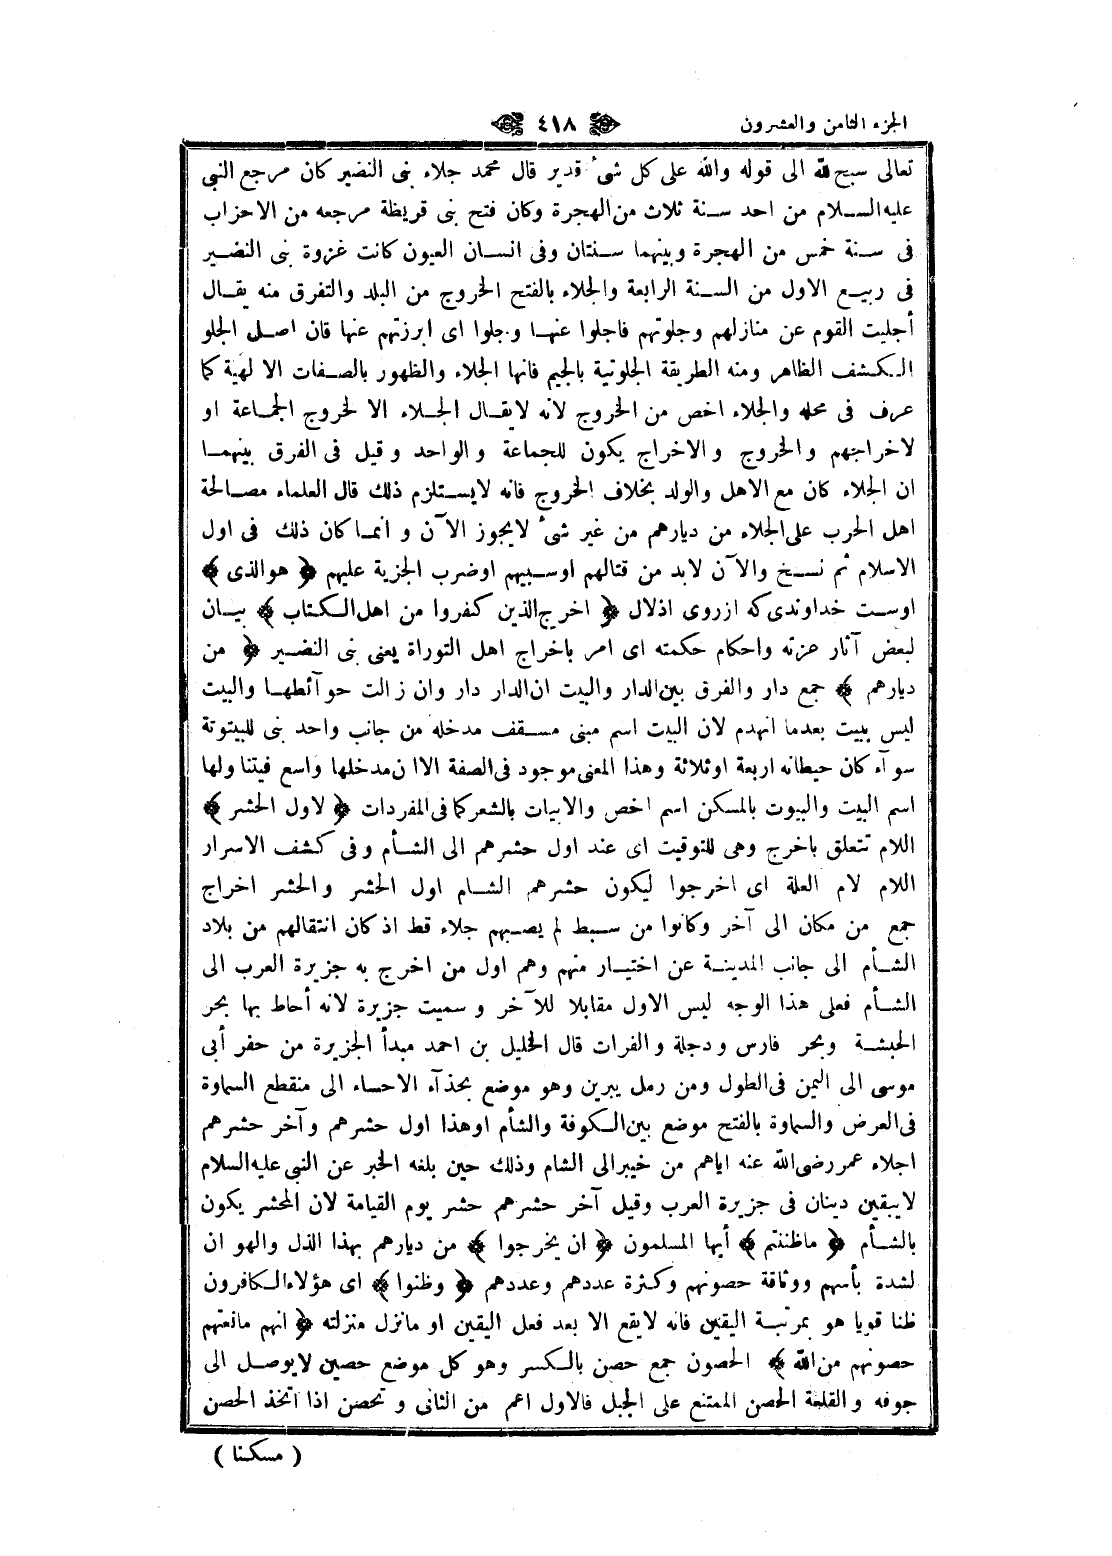 الجزء الثامن والعشرون ٤١٨
تعالى سبح لله الى قوله والله على كل شئ قدير قال محمد جلاء بنى النضير كان مرجع النبى
عليه السلام من احد سنة ثلاث من الهجرة وكان فتح بنى قريظة مرجعه من الاحزاب
فى سنة خمس من الهجرة وبينهما سنتان وفى انسان العيون كانت غزوة بنى النضير
فى ربيع الاول من السنة الرابعة والجلاء بالفتح الخروج من البلد والتفرق منه يقال
أجليت القوم عن منازلهم وجلوتهم فاجلوا عنها وجلوا اى ابرزتهم عنها فان اصل الجلو
الكشف الظاهر ومنه الطريقة الجلوتية بالجيم فانها الجلاء والظهور بالصفات الالهية كما
عرف فى محله والجلاء اخص من الخروج لانه لايقال الجلاء الا لخروج الجماعة او
لاخراجهم والخروج والاخراج يكون للجماعة والواحد وقيل فى الفرق بينهما
ان الجلاء كان مع الاهل والولد بخلاف الخروج فانه لايستلزم ذلك قال العلماء مصالحة
اهل الحرب على الجلاء من ديارهم من غير شئ لايجوز الآن وانما كان ذلك فى اول
الاسلام ثم نسخ والآن لابد من قتالهم اوسبيهم اوضرب الجزية عليهم ﴿ هوالذى ﴾
اوست خداوندى كه ازروى اذلال ﴿ اخرج الذين كفروا من اهل الكتاب ﴾ بيان
لبعض آثار عزته واحكام حكمته اى امر باخراج اهل التوراة يعنى بنى النضير ﴿ من
ديارهم ﴾ جمع دار والفرق بين الدار والبيت ان الدار دار وان زالت حوآئطها والبيت
ليس ببيت بعدما انهدم لان البيت اسم مبنى مسقف مدخله من جانب واحد بنى للبيتوتة
سوآء كان حيطانه اربعة اوثلاثة وهذا المعنى موجود فى الصفة الا ان مدخلها واسع فيتناولها
اسم البيت والبيوت بالمسكن اسم اخص والابيات بالشعر كما فى المفردات ﴿ لاول الحشر ﴾
اللام تتعلق باخرج وهى للتوقيت اى عند اول حشرهم الى الشأم وفى كشف الاسرار
اللام لام العلة اى اخرجوا ليكون حشرهم الشام اول الحشر والحشر اخراج
جمع من مكان الى آخر وكانوا من سبط لم يصبهم جلاء قط اذ كان انتقالهم من بلاد
الشأم الى جانب المدينة عن اختيار منهم وهم اول من اخرج به جزيرة العرب الى
الشأم فعلى هذا الوجه ليس الاول مقابلا للآخر وسميت جزيرة لانه أحاط بها بحر
الحبشة وبحر فارس ودجلة والفرات قال الخليل بن احمد مبدأ الجزيرة من حفر أبى
موسى الى اليمن فى الطول ومن رمل يبرين وهو موضع بحذآء الاحساء الى منقطع السماوة
فى العرض والسماوة بالفتح موضع بين الكوفة والشأم اوهذا اول حشرهم وآخر حشرهم
اجلاء عمر رضى الله عنه اياهم من خيبر الى الشام وذلك حين بلغه الخبر عن النبى عليه السلام
لايبقين دينان فى جزيرة العرب وقيل آخر حشرهم حشر يوم القيامة لان المحشر يكون
بالشأم ﴿ ماظننتم ﴾ أيها المسلمون ﴿ ان يخرجوا ﴾ من ديارهم بهذا الذل والهوان
لشدة بأسهم ووثاقة حصونهم وكثرة عددهم وعددهم ﴿ وظنوا ﴾ اى هؤلاء الكافرون
ظنا قويا هو بمرتبة اليقين فانه لايقع الا بعد فعل اليقين او مانزل منزلته ﴿ انهم مانعتهم
حصونهم من الله ﴾ الحصون جمع حصن بالكسر وهو كل موضع حصين لايوصل الى
جوفه والقلعة الحصن الممتنع على الجبل فالاول اعم من الثانى وتحصن اذا اتخذ الحصن
( مسكنا )